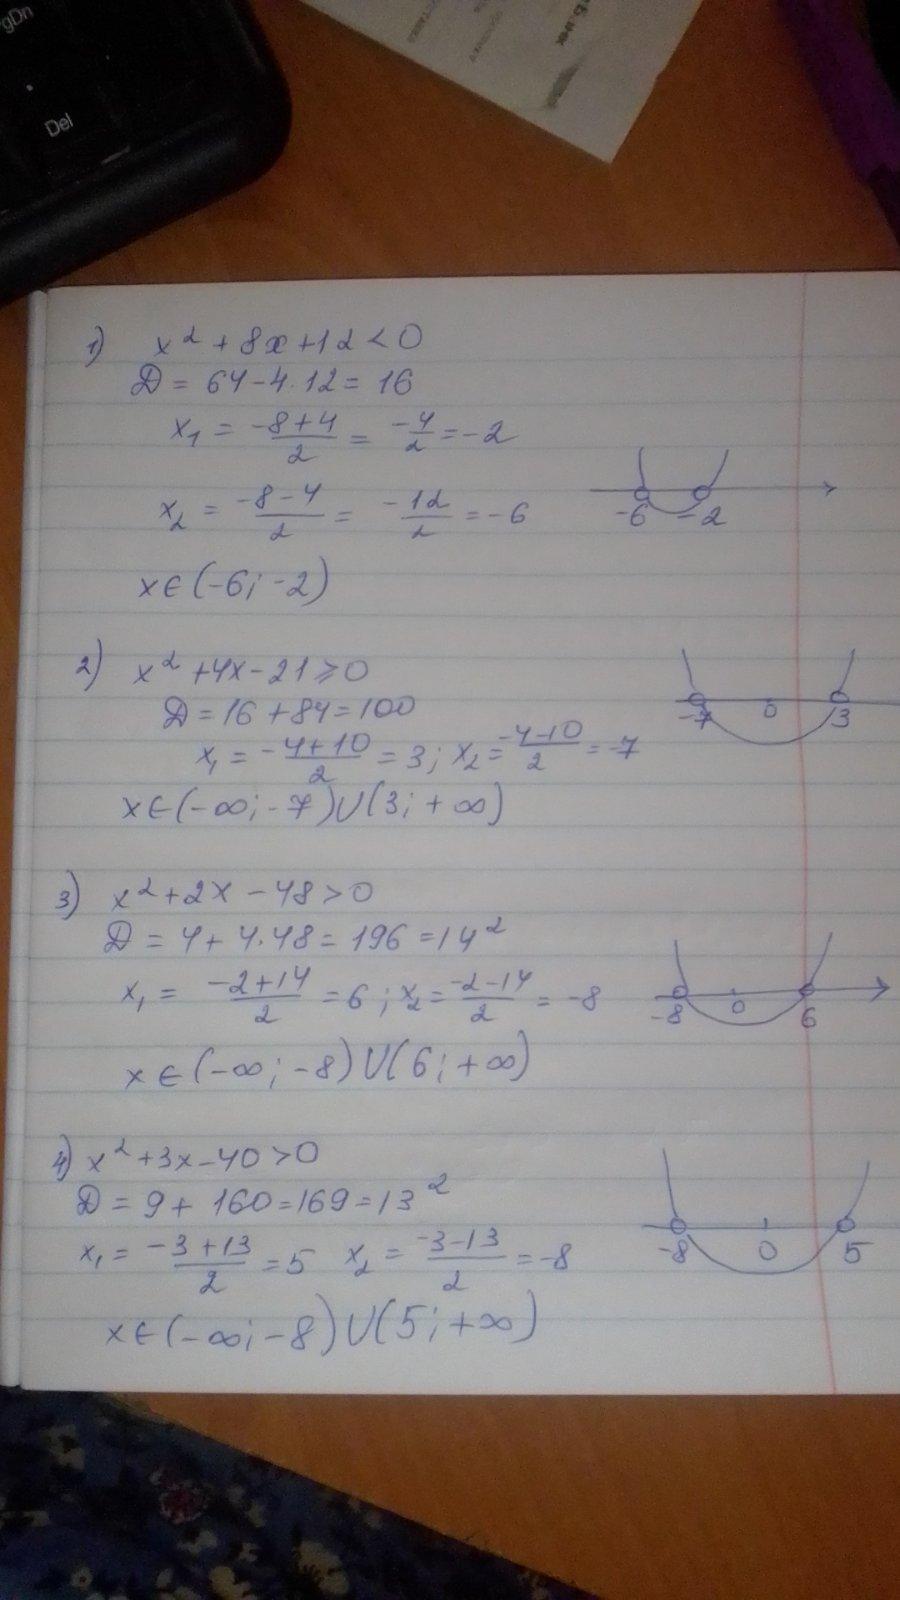 gDn
Del
1) x² + 8x + 12 < 0
D = 64 - 4·12 = 16
x₁ = (-8+4)/2 = -4/2 = -2
x₂ = (-8-4)/2 = -12/2 = -6
-6 -2
x∈(-6; -2)
2) x² + 4x - 21 ≥ 0
D = 16 + 84 = 100
-7 0 3
x₁ = (-4+10)/2 = 3; x₂ = (-4-10)/2 = -7
x∈(-∞; -7)∪(3; +∞)
3) x² + 2x - 48 > 0
D = 4 + 4·48 = 196 = 14²
x₁ = (-2+14)/2 = 6; x₂ = (-2-14)/2 = -8
-8 0 6
x∈(-∞; -8)∪(6; +∞)
4) x² + 3x - 40 > 0
D = 9 + 160 = 169 = 13²
x₁ = (-3+13)/2 = 5 x₂ = (-3-13)/2 = -8
-8 0 5
x∈(-∞; -8)∪(5; +∞)